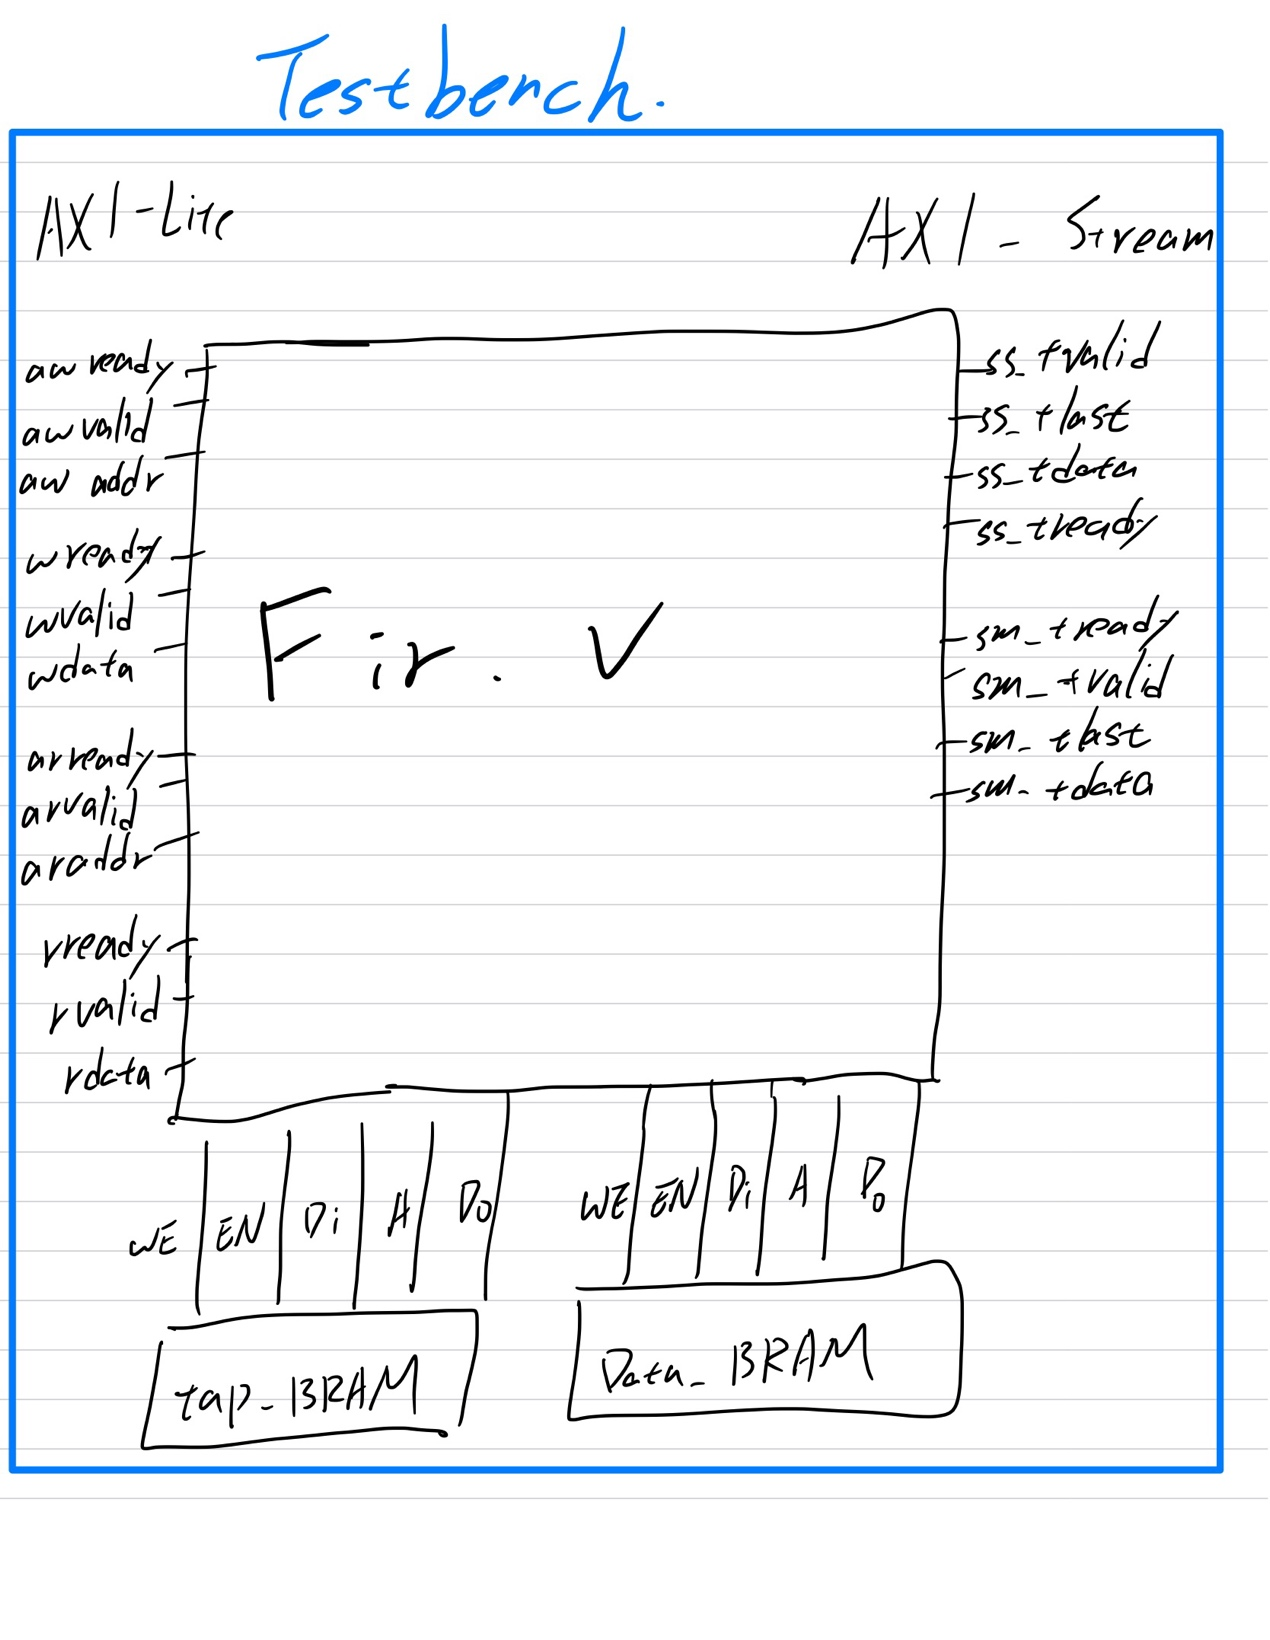 Testbench.
AXI-Lite
AXI - Stream
aw ready
aw valid
aw addr
wready
wvalid
wdata
arready
arvalid
araddr
rready
rvalid
rdata
Fir. V
ss_tvalid
ss_tlast
ss_tdata
ss_tready
sm_tready
sm_tvalid
sm_tlast
sm_tdata
WE EN Di A Do
WE EN Di A Do
tap_BRAM
Data_BRAM